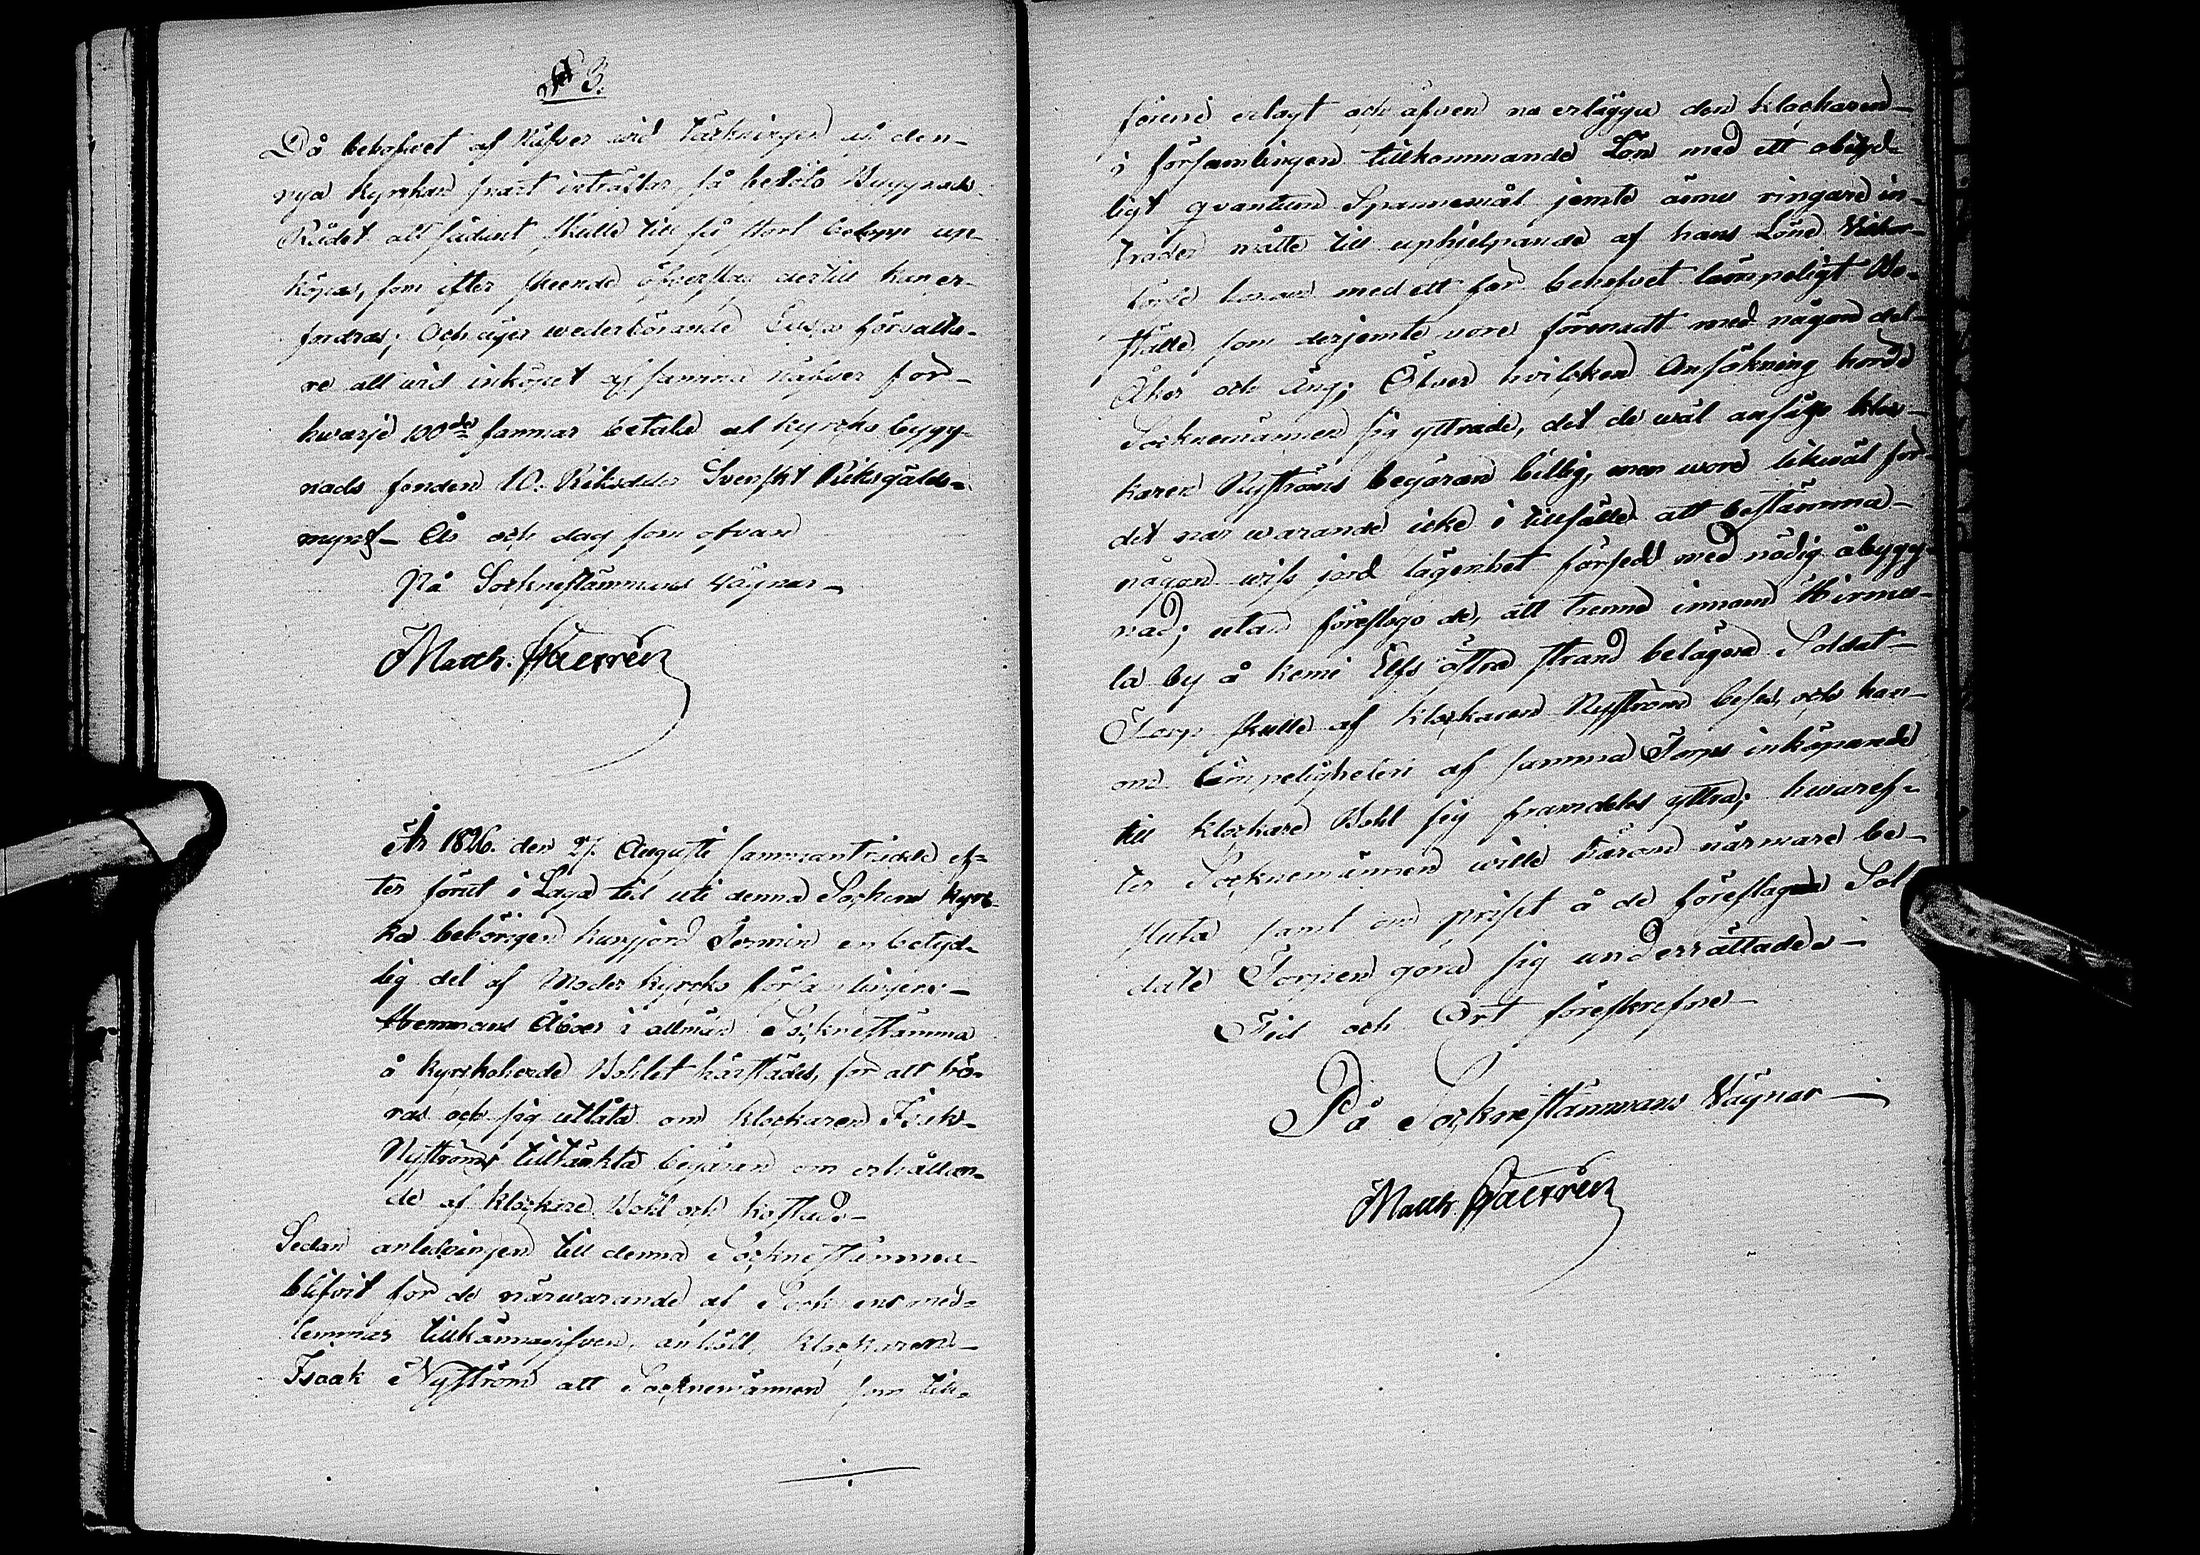 § 3.
Då behofvet af Näfver wid täckningen af den-
nya kyrckan snart inträffar, så beslöts Byggnads
Rådet att sådant skulle till så stort belopp up-
köpas, som efter skeende öfverslag dertill kan er-
fordras; Och äger wederbörande Cassa förvalta-
re att wid inköpet af samma näfver för-
hwarje 100de famnar betala af kyrcko bygg-
nads fonden 10. Riksdaler Svenskt Riksgälds-
mynt_ År och dag som ofvan
På Sockneståmmans vägnar_
Matth:
År 1826. den 27. Augusti sammanträdde ef-
ter förut i Laga tid uti denna Sockens kyrc-
ka behörigen kungjord Termin en betyd-
lig del af Moder kyrcko församlingens_
Hemmans Åboer i allmän Socknestämma
å kyrckoherde Bohlet härstädes, för att hö-
ras och sig utlåta om klockaren Isak
Nyströms tilltänkta begäran om erhållan-
de af klockare Bohl och kostade_
Sedan anledningen till denna Socknestämma
blifvit för de närwarande af Sockens med-
lemmar tillkännagifven, anhöll, klockaren_
Isaak Nyström att Socknemännen som till-
förene erlagt och äfven nu erlägga den klockaren_
i församlingen tillkommande Lön med ett obetyd-
ligt qvantum Spannemål jemte ännu ringare in-
träder måtte till uphjelpande af hans Löne Vilkor
honom med ett för behofvet lämpeligt Bo-
ställe som derjemte vore förenadt med någon del
Åker och äng; Öfver hvilcken Ansökning hörde
Socknemännen sig yttrade, det de wäl ansågo kloc-
karen Nyströms begäran billig, men wore likwäl för
det närwarande icke i tillfälle att bestämma_
någon wiss jord lägenhet försedd med nödig åbygg-
nad; utan föreslogo de, att trenne innom Hirmu-
la by å kemi Elfs östra strand belägna Soldat_
Torp skulle af klockaren Nyström beses, och han
om lämpeligheten af samma Torps inköpande
till klockare Bohl sig framdeles yttra; hwaref-
ter Socknemännen wille härom närmare be-
sluta samt om priset å de föreslagna Sol
date Torpen göra sig underrättade_
Tid och Ort föreskrefne_
På Socknestämmans Vägnar_
Matth: